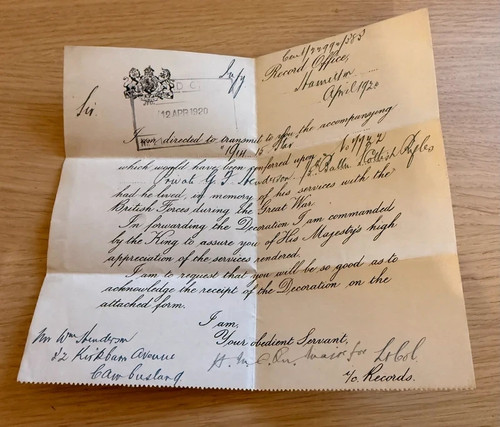 Record Office,
Hamilton
April 1920
12 APR 1920
Sir
I am directed to transmit to you the accompanying
1914 15 Star
which would have been conferred upon No
Private G. T. Henderson Scottish Rifles
had he lived, in memory of his services with the
British Forces during the Great War.
In forwarding the Decoration I am commanded
by the King to assure you of His Majesty's high
appreciation of the services rendered.
I am to request that you will be so good as to
acknowledge the receipt of the Decoration on the
attached form.
I am,
Your obedient Servant,
Major for Lt Col.
I/c Records.
Mr Wm Henderson
82 Kirkburn Avenue
Cambuslang